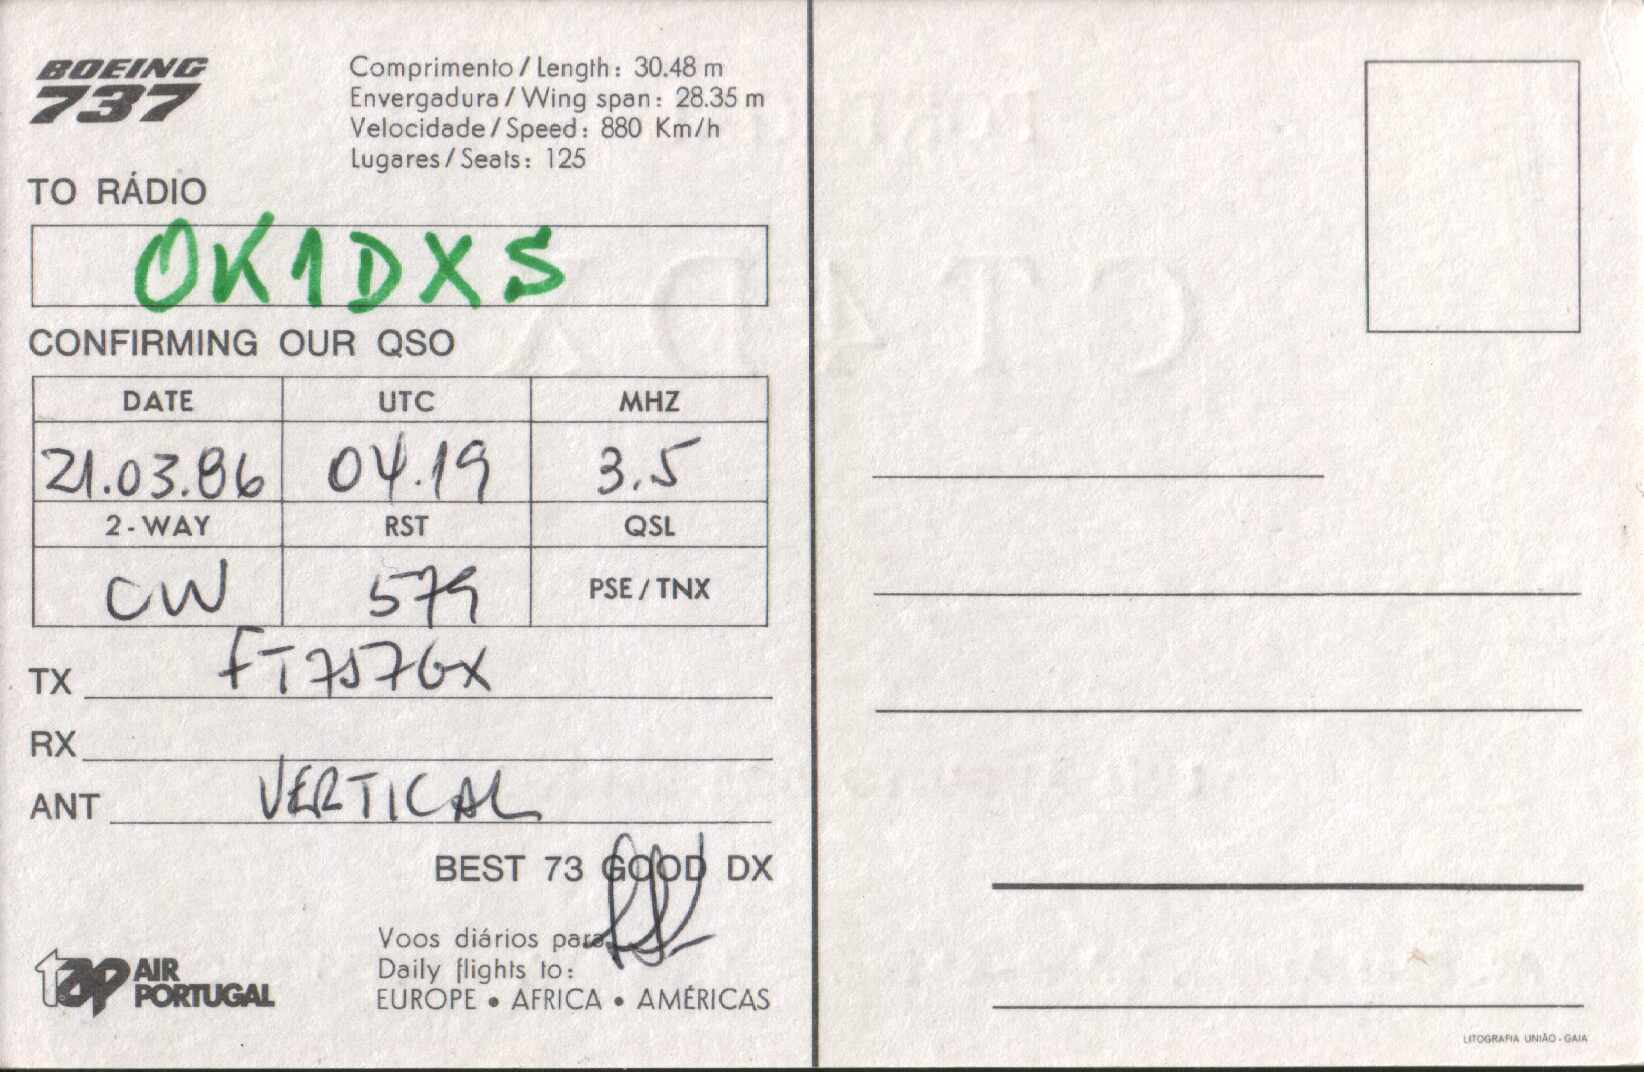 BOEING
737
Comprimento / Length: 30.48 m
Envergadura / Wing span: 28.35 m
Velocidade / Speed: 880 Km/h
Lugares / Seats: 125
TO RÁDIO
OK1DXS
CONFIRMING OUR QSO
DATE UTC MHZ
21.03.86 04.19 3.5
2-WAY RST QSL
CW 579 PSE / TNX
TX FT757GX
RX
ANT VERTICAL
BEST 73 GOOD DX
Voos diários para
Daily flights to:
EUROPE • AFRICA • AMÉRICAS
tap AIR
PORTUGAL
LITOGRAFIA UNIÃO - GAIA